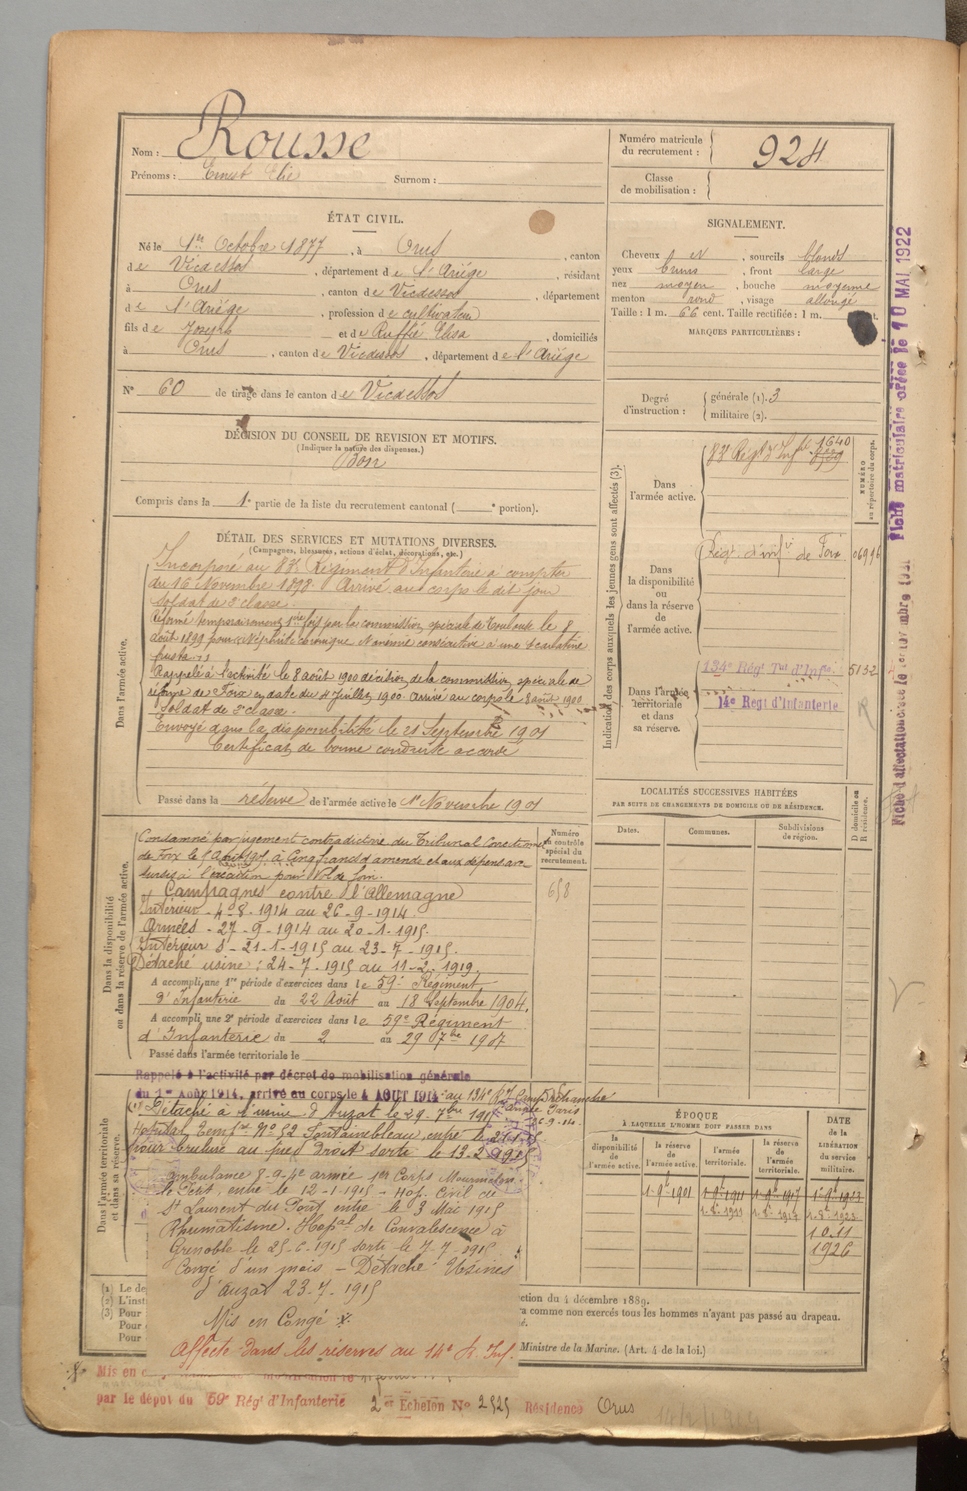 Nom : Rousse
Prénoms : Ernest Elie Surnom :
Numéro matricule du recrutement : 924
Classe de mobilisation :
ÉTAT CIVIL.
Né le 1er Octobre 1877, à Orus, canton
de Vicdessos, département de l'Ariège, résidant
à Orus, canton de Vicdessos, département
de l'Ariège, profession de cultivateur
fils de Joseph et de Ruffié Elisa, domiciliés
à Orus, canton de Vicdessos, département de l'Ariège
N° 60 de tirage dans le canton de Vicdessos
SIGNALEMENT.
Cheveux et, sourcils blonds
yeux bruns, front large
nez moyen, bouche moyenne
menton rond, visage allongé
Taille : 1 m. 66 cent. Taille rectifiée : 1 m. t.
MARQUES PARTICULIÈRES :
Degré d'instruction : générale (1). 3
militaire (2).
DÉCISION DU CONSEIL DE REVISION ET MOTIFS.
(Indiquer la nature des dispenses.)
Bon
Compris dans la 1e partie de la liste du recrutement cantonal ( e portion).
DÉTAIL DES SERVICES ET MUTATIONS DIVERSES.
(Campagnes, blessures, actions d'éclat, décorations, etc.)
Dans l'armée active.
Incorporé au 83e Régiment d'Infanterie à compter
du 16 Novembre 1898. Arrivé au corps le dit jour
soldat de 2e classe.
Réformé temporairement 1ère fois par la commission spéciale de Toulouse le 8
août 1899 pour Néphrite chronique consécutive à une scarlatine
fruste
Rappelé à l'activité le 8 août 1900 décision de la commission spéciale de
réforme de Foix en date du 4 Juillet 1900. arrivé au corps le 8 août 1900
Soldat de 2e classe.
Envoyé dans la disponibilité le 21 Septembre 1901
Certificat de bonne conduite accordé
Passé dans la réserve de l'armée active le 1er Novembre 1901
Indication des corps auxquels les jeunes gens sont affectés (3).
NUMÉRO au répertoire du corps.
Dans l'armée active.
83e Régt d'Infie 1640
Dans la disponibilité ou dans la réserve de l'armée active.
Régt d'infie de Foix 06996
Dans l'armée territoriale et dans sa réserve.
134e Régt Tal d'Infie 5132
14e Regt d'Infanterie R
Fiche matriculaire créée le 10 MAI 1922
LOCALITÉS SUCCESSIVES HABITÉES
PAR SUITE DE CHANGEMENTS DE DOMICILE OU DE RÉSIDENCE.
Dates. Communes. Subdivisions de région. D domicile ou R résidence.
Dans la disponibilité ou dans la réserve de l'armée active.
Numéro au contrôle spécial du recrutement.
658
Condamné par jugement contradictoire du Tribunal Correctionnel
de Foix le août 1901 à Cinq francs d'amende et aux dépens avec
sursis à l'exécution pour Vol de foin.
Campagnes contre l'Allemagne
Intérieur - 4-8-1914 au 26-9-1914.
Armées - 27-9-1914 au 20-1-1915.
Intérieur S - 21-1-1915 au 23-7-1915.
Détaché usine : 24-7-1915 au 11-2-1919.
A accompli une 1re période d'exercices dans le 59e Régiment
d'Infanterie du 22 Août au 18 Septembre 1904.
A accompli une 2e période d'exercices dans le 59e Régiment
d'Infanterie du 2 au 29 7bre 1907
Passé dans l'armée territoriale le
Dans l'armée territoriale et dans sa réserve.
Rappelé à l'activité par décret de mobilisation générale
du 1er Août 1914, arrivé au corps le 4 AOUT 1914 au 134e
Paris
26-9-14.
Détaché à l'usine d'Auzat le 29-7bre
Hôpital Tempre N° 52 Fontainebleau, entré le 21-1-15
pour brûlure au pied Droit sorti le 13.2.1915
Ambulance 8-9-4e armée 1er Corps Mourmelon
le Petit, entré le 12-1-1915 - Hop. Civil de
St Laurent du Pont entré le 3 Mai 1915
Rhumatisme. Hopal de Convalescence à
Grenoble le 25-6-1915 sorti le 7-7-1915
Congé d'un mois - Détaché Usines
d'Auzat 23-7-1915
Mis en Congé
Affecté dans les réserves au 14e R. Inf.
ÉPOQUE
À LAQUELLE L'HOMME DOIT PASSER DANS
la disponibilité de l'armée active. la réserve de l'armée active. l'armée territoriale. la réserve de l'armée territoriale.
DATE de la LIBÉRATION du service militaire.
1-9bre 1901 1-9bre 1911 1-9bre 1917 1-9bre 1923
10.11
1926
(1) Le de
(2) L'inst
(3) Pour
Pour
Pour
ction du 4 décembre 1889.
ra comme non exercés tous les hommes n'ayant pas passé au drapeau.
é.
Ministre de la Marine. (Art. 4 de la loi.)
Mis en c
par le dépôt du 59e Régt d'Infanterie 2e Echelon N° 2525 Résidence Orus